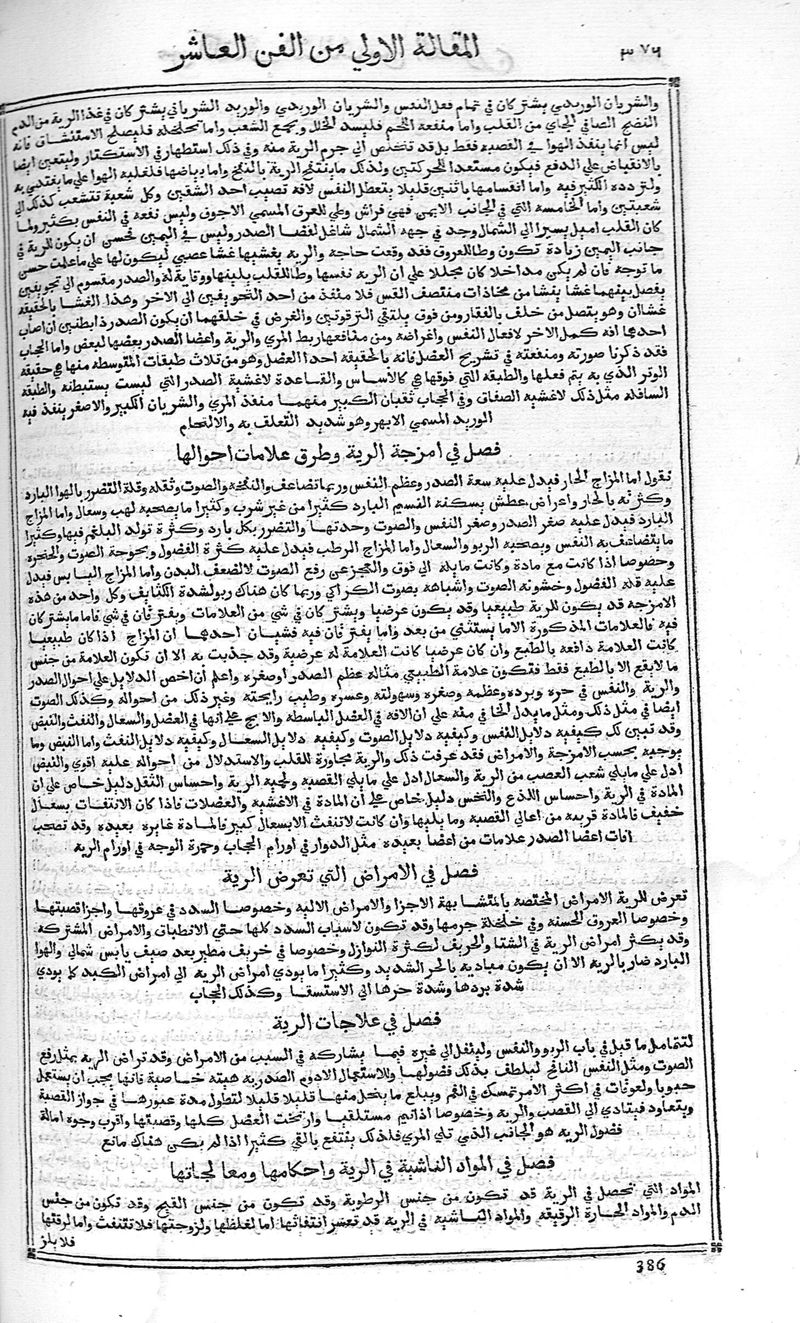 ٣٧٦
المقالة الاولي من الفن العاشر
والشريان الوريدي يشتركان في تمام فعل النفس والشريان الوريدي والوريد الشرياني يشتركان في غذا الرية من الدم
النضيج الصافي الجاي من القلب واما منفعة اللحم فليسد الخلل ويجمع الشعب واما تخلخله فليصلح الاستنشاق فانه
ليس انما ينفذ الهوا في القصبه فقط بل قد يتخلص الي جرم الرية منه وفي ذلك استظهار في الاستكثار وليتعين ايضا
بالانقباض علي الدفع فيكون مستعدا للحركتين ولذلك ما ينتفخ الرية بالنفخ واما بياضها فلغلبه الهوا علي ما يغتذي به
ولتردده الكثير فيه واما انقسامها باثنين فليلا يتعطل النفس لافه تصيب احد الشقين وكل شعبة تتشعب كذلك الي
شعبتين واما الخامسه التي في الجانب الايمن فهي فراش وطي للعرق المسمي الاجوف وليس نفعه في النفس بكثير ولما
كان القلب اميل يسيرا الي الشمال وجد في جهه الشمال شاغل لفضا الصدر وليس في اليمين فحسن ان يكون للرية في
جانب اليمين زيادة تكون وطا للعروق فقد وقعت حاجة والرية يغشيها غشا عصبي ليكون لها علي ما علمت حس
ما توجه فان لم يكن مداخلا كان مجللا علي ان الرية نفسها وطا للقلب بلينها ووقاية له والصدر مقسوم الي تجويفين
يفصل بينهما غشا ينشا من محاذات منتصف القس فلا منفذ من احد التجويفين الي الاخر وهذا الغشا بالحقيقة
غشاان وهو يتصل من خلف بالفقار ومن فوق بملتقي الترقوتين والغرض في خلقهما ان يكون الصدر ذا بطنين ان اصاب
احدهما افه كمل الاخر لافعال النفس واغراضه ومن منافعها ربط المري والرية واعضا الصدر بعضها لبعض واما الحجاب
فقد ذكرنا صورته ومنفعته في تشريح العضل فانه بالحقيقه احدا العضل وهو من ثلاث طبقات المتوسطه منها هي حقيقه
الوتر الذي به يتم فعلها والطبقه التي فوقها هي كالاساس والقاعدة لاغشية الصدر التي ليست يستبطنه والطبقه
السافله مثل ذلك لاغشيه الصفاق وفي الحجاب ثقبان الكبير منهما منفذ المري والشريان الكبير والاصغر ينفذ فيه
الوريد المسمي الابهر وهو شديد التعلف به والالتحام
فصل في امزجة الرية وطرق علامات احوالها
نقول اما المزاج الحار فيدل عليه سعة الصدر وعظم النفس وربما تضاعف والنفخه والصوت وثقله وقلة التضرر بالهوا البارد
وكثرته بالحار واعراض عطش يسكنه النسيم البارد كثيرا من غير شرب وكثيرا ما يصحبه لهب وسعال واما المزاج
البارد فيدل عليه صغر الصدر وصغر النفس والصوت وحدتهما والتضرر بكل بارد وكثرة تولد البلغم فيها وكثيرا
ما يتضاعف به النفس ويصحبه الربو والسعال واما المزاج الرطب فيدل عليه كثرة الفضول وبحوحة الصوت والخرخره
وخصوصا اذا كانت مع مادة وكانت مايله الي فوق والعجز عن رفع الصوت لا لضعف البدن واما المزاج اليابس فيدل
عليه قله الفضول وخشونه الصوت واشباهه بصوت الكراكي وربما كان هناك ربو لشدة التكاثف وكل واحد من هذه
الامزجة قد يكون للرية طبيعيا وقد يكون عرضيا ويشتركان في شي من العلامات ويفترقان في شي فاما ما يشتركان
فيه فالعلامات المذكورة الا ما يستثني من بعد واما يفترقان فيه فشيان احدهما ان المزاج اذا كان طبيعيا
كانت العلامة واقعه بالطبع وان كان عرضيا كانت العلامة له عرضية وقد حدثت به الا ان تكون العلامة من جنس
ما لا يقع الا بالطبع فقط فتكون علامة الطبيعي مثاله عظم الصدر او صغره واعلم ان اخص الدلايل علي احوال الصدر
والرية والنفس في حره وبرده وعظمه وصغره وسهولته وعسره وطيب رايحته وغير ذلك من احواله وكذلك الصوت
ايضا في مثل ذلك ومثل ما يدل الخا في مثه علي ان الافه في العضل الباسطة والابح علي انها في العضل والسعال والنفث والنبض
وقد تبين لك كيفيه دلايل النفس وكيفيه دلايل الصوت وكيفيه دلايل السعال وكيفيه دلايل النفث واما النبض وما
يوجبه بحسب الامزجة والامراض فقد عرفت ذلك والرية مجاورة للقلب والاستدلال من احواله عليه اقوي والنبض
ادل علي ما يلي شعب العصب من الرية والسعال ادل علي ما يلي القصبه ولحيه الرية واحساس الثقل دليل خاص علي ان
المادة في الرية واحساس اللذع والنخس دليل خاص علي ان المادة في الاغشيه والعضلات فاذا كان الانتفاث بسعال
خفيف فالمادة قريبه من اعالي القصبه وما يليها وان كانت لا تنفث الا بسعال كبير فالمادة غايره بعيده وقد تصحب
افات اعضا الصدر علامات من اعضا بعيده مثل الدوار في اورام الحجاب وحمرة الوجه في اورام الريه
فصل في الامراض التي تعرض الرية
تعرض للرية الامراض المختصه بالمتشابهة الاجزا والامراض الاليه وخصوصا السدد في عروقها واجزا قصبتها
وخصوصا العروق الخشنه وفي خلخلة جرمها وقد تكون لاسباب السدد كلها حتي الانطباق والامراض المشتركه
وقد يكثر امراض الرية في الشتا والخريف لكثرة النوازل وخصوصا في خريف مطير بعد صيف يابس شمالي والهوا
البارد ضار بالرية الا ان يكون متاديه بالحر الشديد وكثيرا ما يودي امراض الريه الي امراض الكبد كما يودي
شدة بردها وشدة حرها الي الاستسقا وكذلك الحجاب
فصل في علاجات الرية
لتتامل ما قيل في باب الربو والنفس ولينقل الي غيره فيما يشاركه في السبب من الامراض وقد تراض الريه بمثل رفع
الصوت ومثل النفس النافخ ليلطف بذلك فضولها وللاستعمال الادوم الصدريه هيئه خاصية فانها يجب ان يستعمل
حبوبا ولعوقات في اكثر الامر تمسك في الفم ويبلع ما ينحل منها قليلا قليلا لتطول مدة عبورها في جواز القصبة
ويتعاود فيتادي الي القصب والريه وخصوصا اذا نيم مستلقيا وارتخت العضل كلها وقصبتها واقرب وجوه امالة
فضول الريه هو الجانب الذي تلي المري فلذلك ينتفع بالقي كثيرا اذا لم يكن هناك مانع
فصل في المواد الناشبة في الرية واحكامها ومعالجاتها
المواد التي تحصل في الرية قد تكون من جنس الرطوبة وقد تكون من جنس القيح وقد تكون من جنس
الدم والمواد الحارة الرقيقه والمواد الناشبه في الريه قد تعسر انتفاثها اما لغلظها ولزوجتها فلا تنتفث واما لرقتها
فلا يلز
386